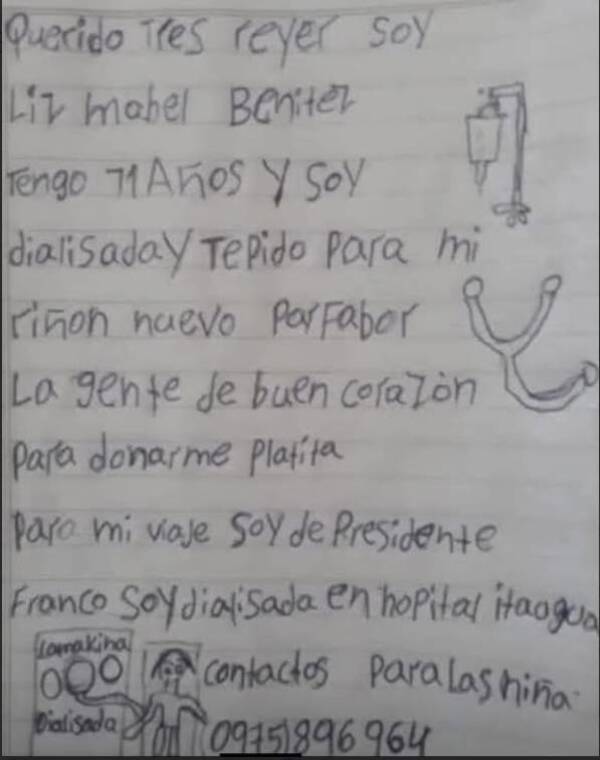 Querido Tres reyer soy
Liz mabel Benitez
Tengo 11 Años y soy
dialisada y Te pido para mi
riñon nuevo Por Fabor
La gente de buen corazòn
para donarme platita
para mi viaje soy de Presidente
Franco soy dialisada en hopital itaogua
Lamakina
contactos para las niña.
Dialisada
0975)896 964